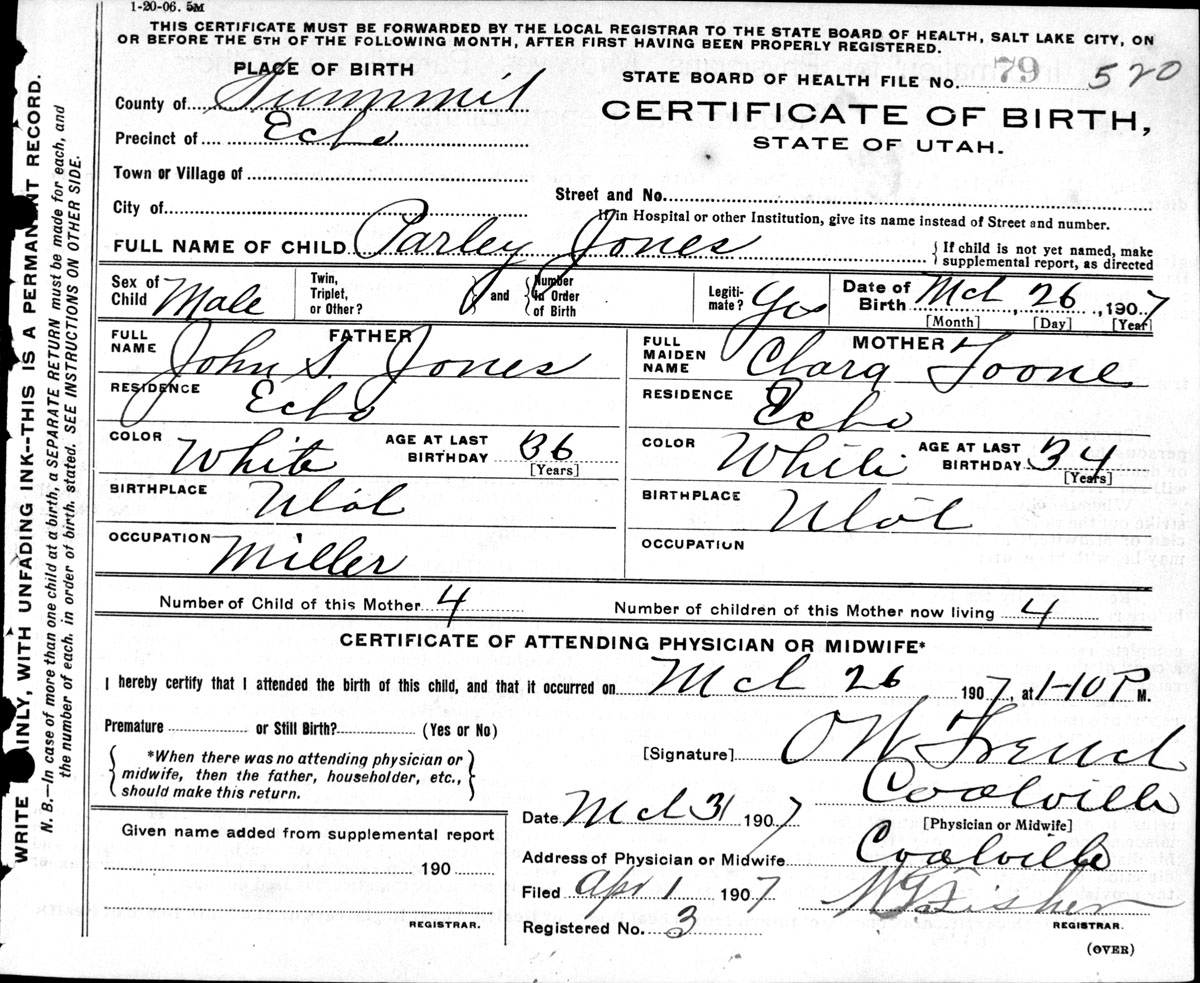 1-20-06. 5M
THIS CERTIFICATE MUST BE FORWARDED BY THE LOCAL REGISTRAR TO THE STATE BOARD OF HEALTH, SALT LAKE CITY, ON
OR BEFORE THE 5TH OF THE FOLLOWING MONTH, AFTER FIRST HAVING BEEN PROPERLY REGISTERED.
PLACE OF BIRTH
County of Summit
Precinct of Echo
Town or Village of
City of
STATE BOARD OF HEALTH FILE No. 79 520
CERTIFICATE OF BIRTH,
STATE OF UTAH.
Street and No.
If in Hospital or other Institution, give its name instead of Street and number.
FULL NAME OF CHILD Parley Jones { If child is not yet named, make
supplemental report, as directed
Sex of Child Male
Twin, Triplet, or Other? and { Number in Order of Birth
Legiti-mate? Yes
Date of Birth Mch 26, 1907
[Month] [Day] [Year]
FATHER
FULL NAME John S. Jones
RESIDENCE Echo
COLOR White AGE AT LAST BIRTHDAY 36
[Years]
BIRTHPLACE Utah
OCCUPATION Miller
MOTHER
FULL MAIDEN NAME Clara Toone
RESIDENCE Echo
COLOR White AGE AT LAST BIRTHDAY 34
[Years]
BIRTHPLACE Utah
OCCUPATION
Number of Child of this Mother 4 Number of children of this Mother now living 4
CERTIFICATE OF ATTENDING PHYSICIAN OR MIDWIFE*
I hereby certify that I attended the birth of this child, and that it occurred on Mch 26 1907, at 1-10 P M.
Premature or Still Birth? (Yes or No)
{ *When there was no attending physician or
midwife, then the father, householder, etc.,
should make this return. }
[Signature] O W French
Coalville
[Physician or Midwife]
Date Mch 31 1907
Address of Physician or Midwife Coalville
Filed Apr 1 1907 Fisher
REGISTRAR.
Registered No. 3
(OVER)
Given name added from supplemental report
190
REGISTRAR.
WRITE PLAINLY, WITH UNFADING INK--THIS IS A PERMANENT RECORD.
N. B.—In case of more than one child at a birth, a SEPARATE RETURN must be made for each, and
the number of each, in order of birth, stated. SEE INSTRUCTIONS ON OTHER SIDE.